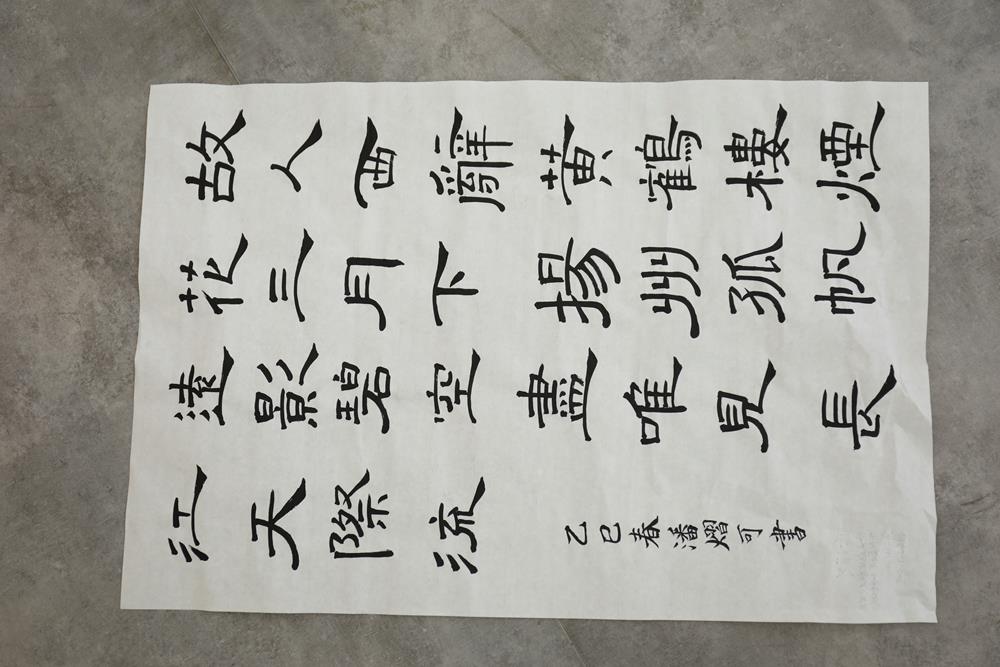 故人西辭黃鶴樓煙
花三月下揚州孤帆
遠影碧空盡唯見長
江天際流
乙巳春潘熠可書